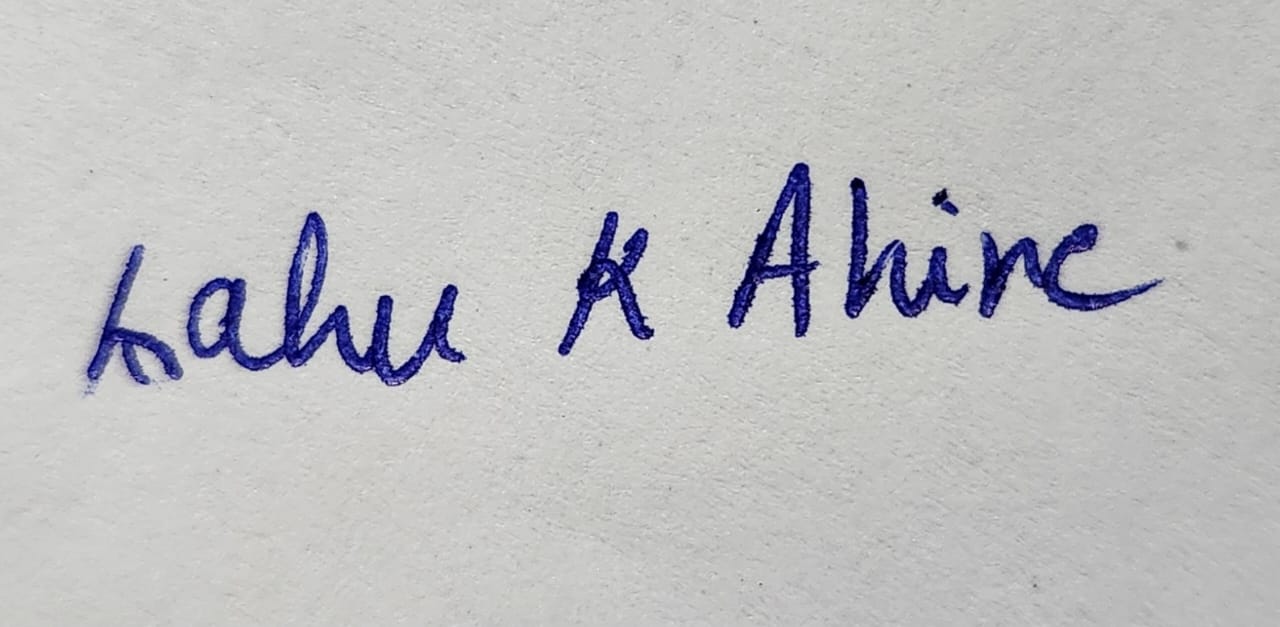 Lahu K Ahire